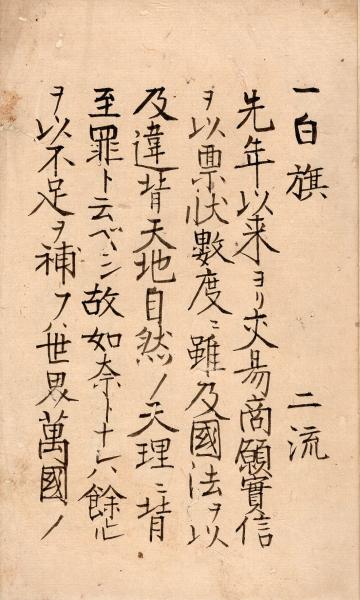 一白旗　二流
先年以来ヨリ交易商願實信
ヲ以票状數度ニ雖及國法ヲ以
及違背天地自然ノ天理ニ背
至罪ト云ベシ故如奈トナレハ餘ル
ヲ以不足ヲ補フハ世界萬國ノ